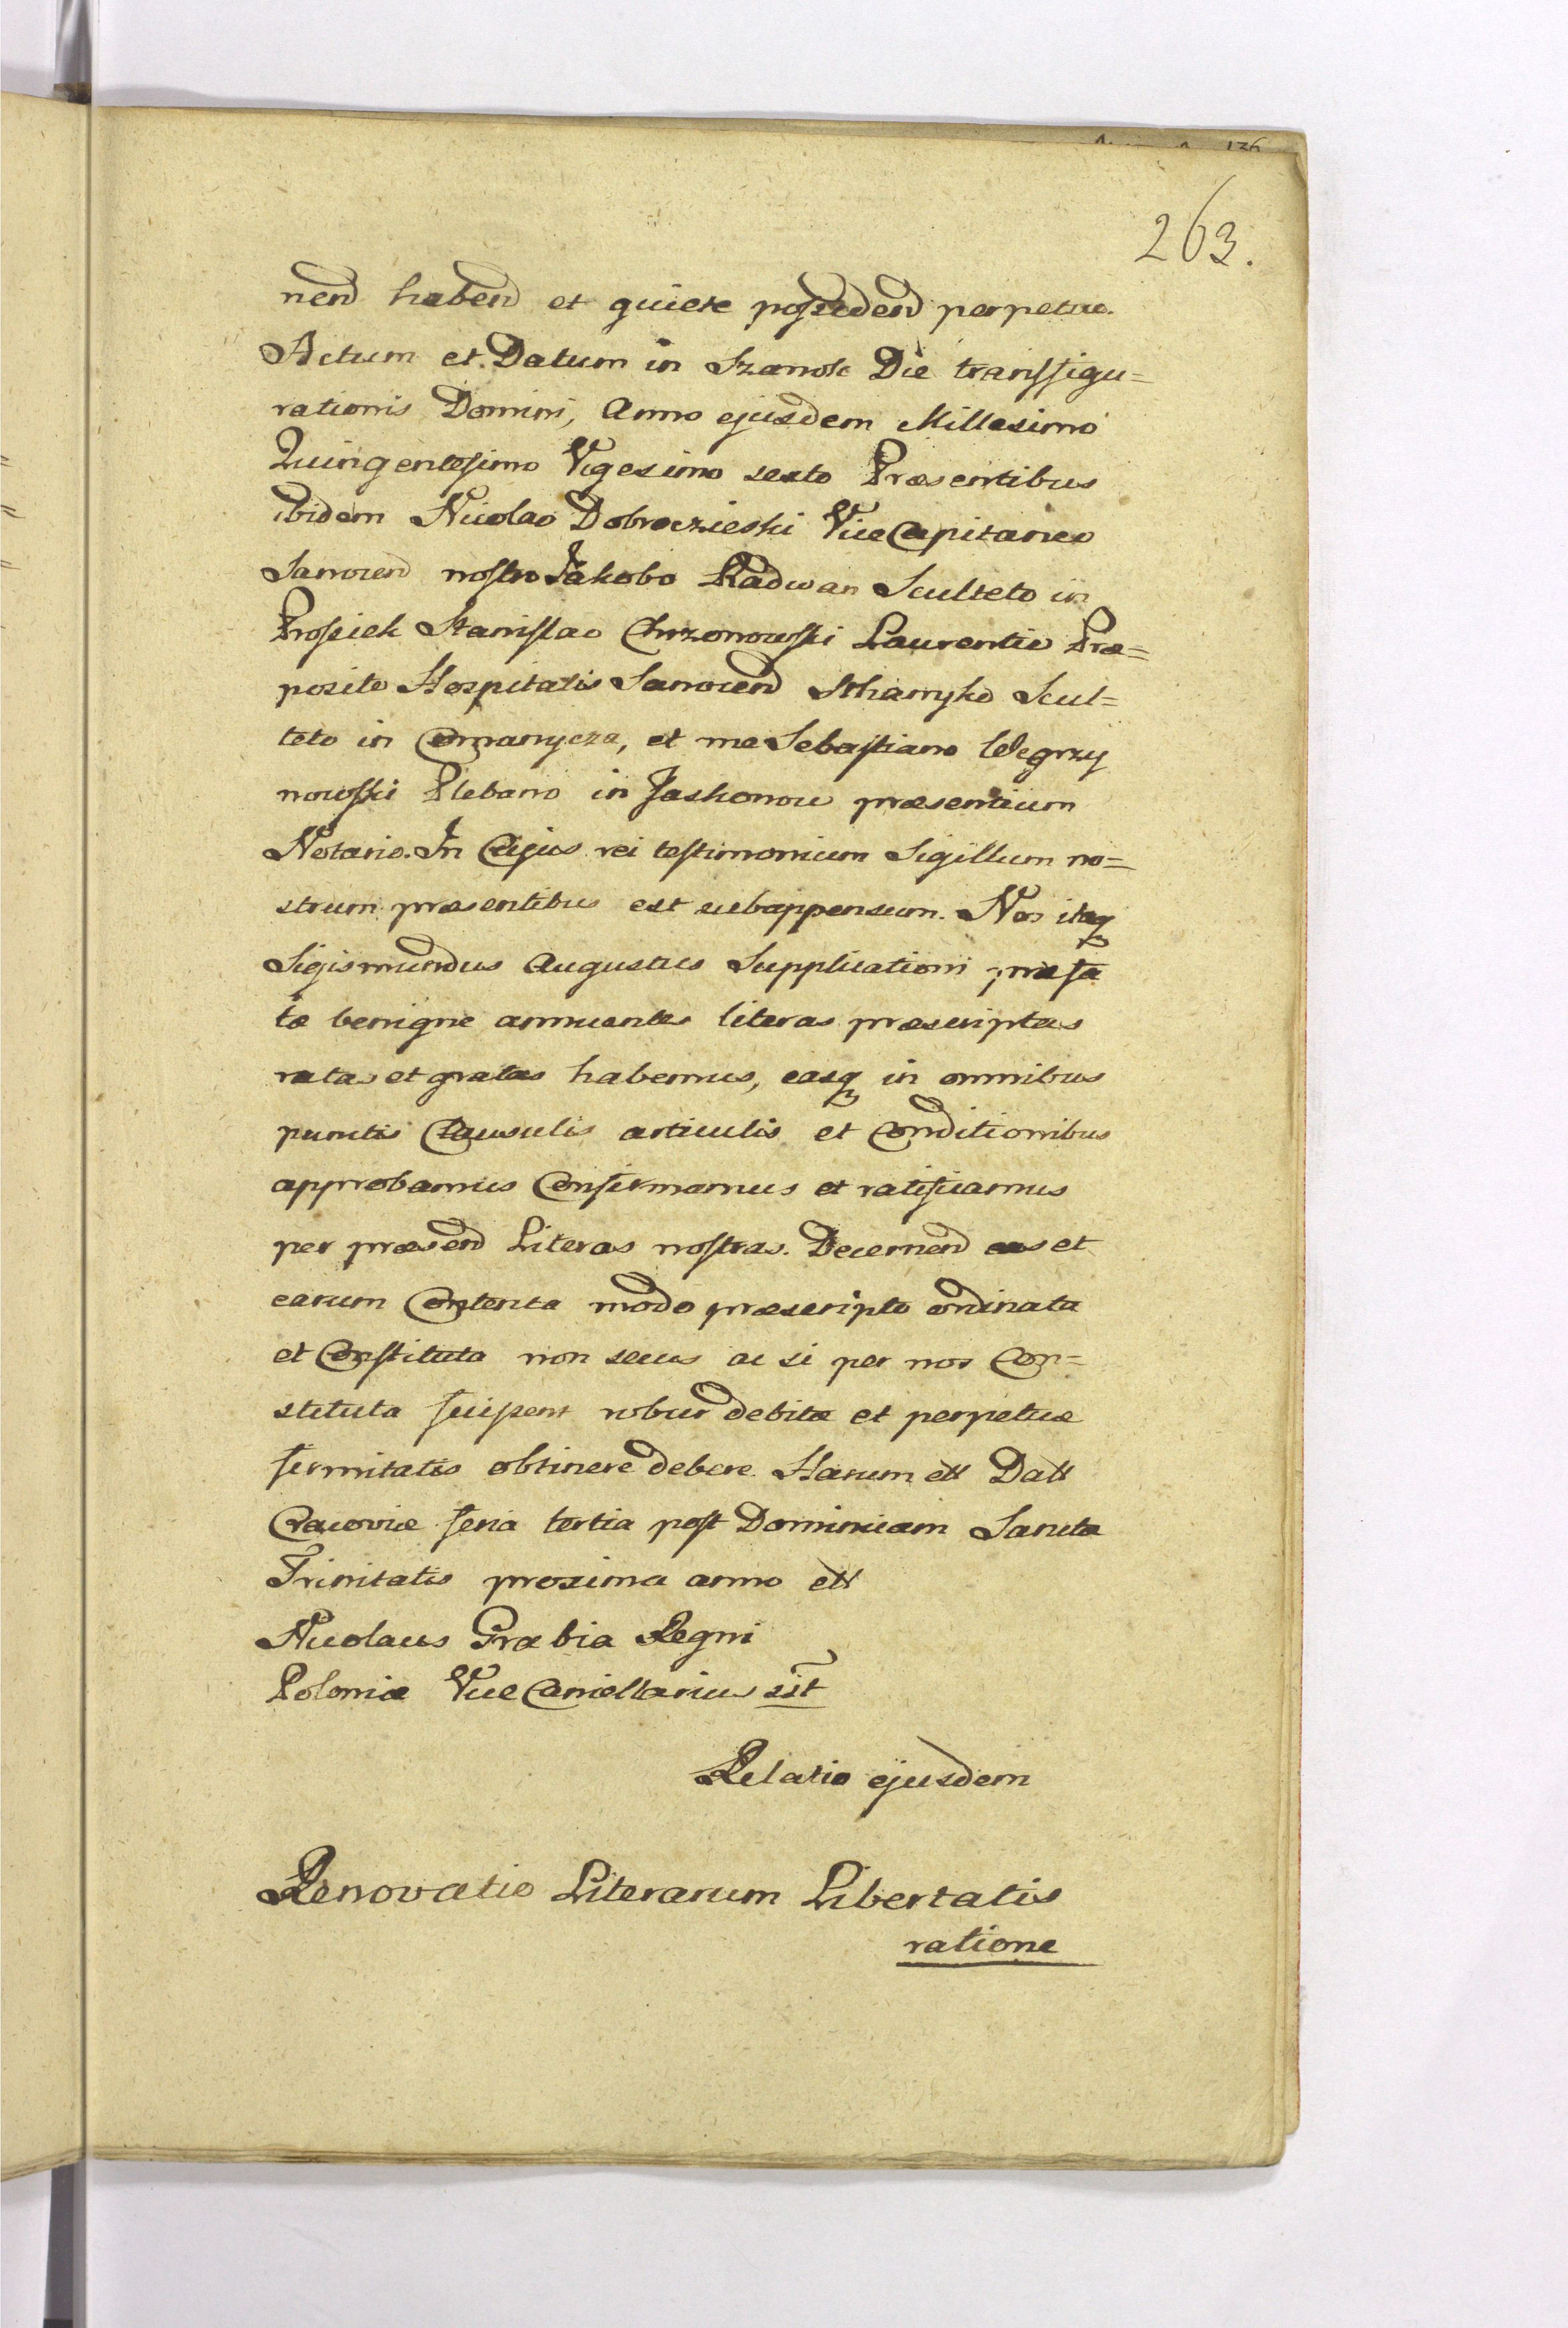 263.
nend habend et quiete possidend perpetuo.
Actum et Datum in Szanok Die transfigu=
rationis Domini, Anno ejusdem Millesimo
Quingentesimo Vigesimo sexto Præsentibus
ibidem Nicolao Dobroczieski Vice Capitaneo
Sanocen nostro Jakobo Radwan Sculteto in
Prosiek Stanislao Chrzonowski Laurentio Præ=
posito Hospitalis Sanocen Sthanyko Scul=
teto in Comanycza, et me Sebastiano Wegrzy
nowski Plebano in Jaskonow præsentium
Notario. In Cujus rei testimonium Sigillum no=
strum præsentibus est subappensum. Nos itaq
Sigismundus Augustus Supplicationi præfa
tæ benigne annuentes literas præscriptas
ratas et gratas habemus, easq in omnibus
punctis Clausulis articulis et Conditionibus
approbamus Confirmamus et ratificamus
per præsend Literas nostras. Decernend eas et
earum Contenta modo præscripto ordinata
et Constituta non secus ac si per nos Con=
stituta fuissent robur debitæ et perpetuæ
firmitatis obtinere debere. Harum ett Datt
Cracoviæ feria tertia post Dominicam Sancta
Trinitatis proxima anno ett
Nicolaus Grabia Regni
Poloniæ Vice Cancellarius sst
Relatio ejusdem
Renovatio Literarum Libertatis
ratione